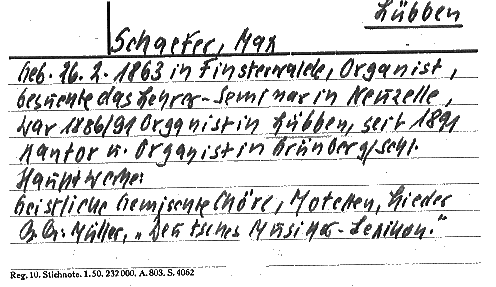 Lübben
Schaefer, Max
Geb. 26. 2. 1863 in Finsterwalde, Organist,
besuchte das Lehrer-Seminar in Neuzelle,
war 1886/91 Organist in Lübben, seit 1891
Kantor u. Organist in Grünberg/Schl.
Hauptwerke:
Geistliche Gemischte Chöre, Motetten, Lieder
E. H. Müller, „Deutsches Musiker-Lexikon."
Reg. 10. Stichnote. 1. 50. 232 000. A. 803. S. 4062